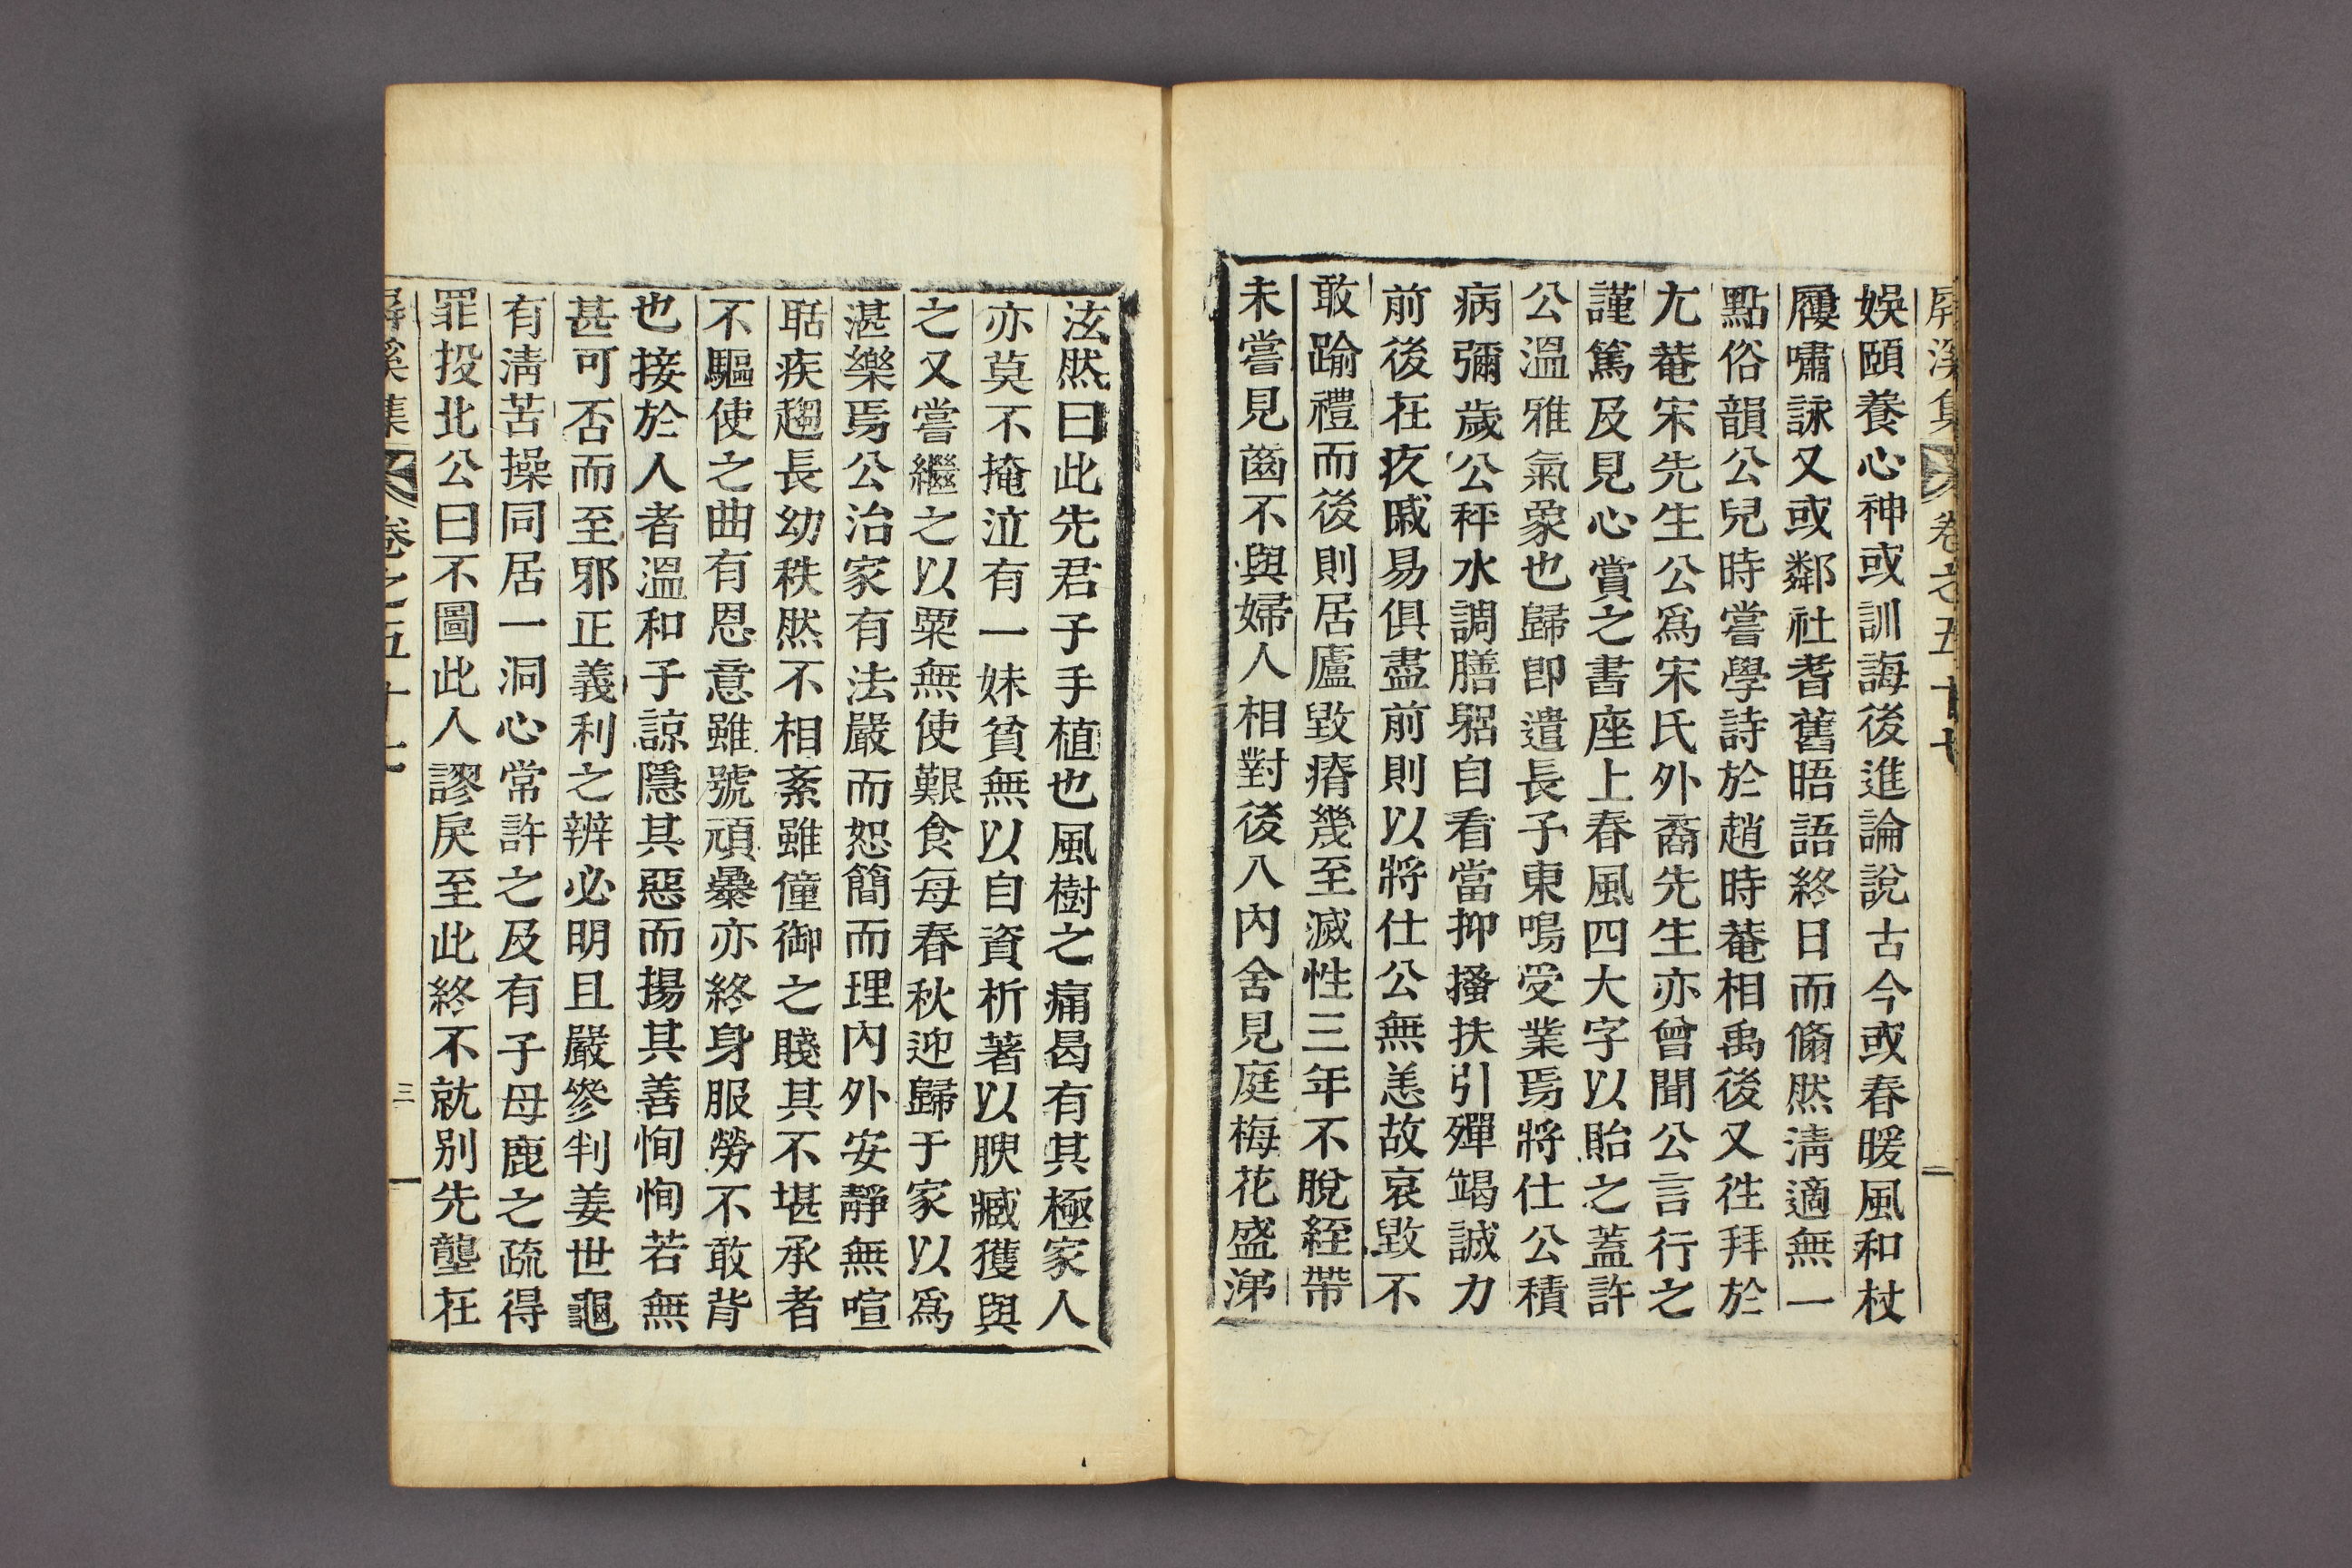 屛溪集 卷之五十七 二
娛頤養心神或訓誨後進論說古今或春暖風和杖
屨嘯詠又或鄰社耆舊晤語終日而翛然淸適無一
點俗韻公兒時嘗學詩於趙時菴相禹後又徃拜於
尢菴宋先生公爲宋氏外裔先生亦曾聞公言行之
謹篤及見心賞之書座上春風四大字以貽之蓋許
公溫雅氣象也歸卽遣長子東鳴受業焉將仕公積
病彌歲公秤水調膳躬自看當抑搔扶引殫竭誠力
前後在疚戚易俱盡前則以將仕公無恙故哀毁不
敢踰禮而後則居廬毁瘠幾至滅性三年不脫絰帶
未嘗見齒不與婦人相對後入內舍見庭梅花盛涕
泫然曰此先君子手植也風樹之痛曷有其極家人
亦莫不掩泣有一妹貧無以自資析著以腴臧獲與
之又嘗繼之以粟無使艱食每春秋迎歸于家以爲
湛樂焉公治家有法嚴而恕簡而理內外安靜無喧
聒疾趨長幼秩然不相紊雖僮御之賤其不堪承者
不驅使之曲有恩意雖號頑暴亦終身服勞不敢背
也接於人者溫和子諒隱其惡而揚其善恂恂若無
甚可否而至邪正義利之辨必明且嚴參判姜世龜
有淸苦操同居一洞心常許之及有子母鹿之疏得
罪投北公曰不圖此人謬戾至此終不就别先壟在
屛溪集 卷之五十七 三